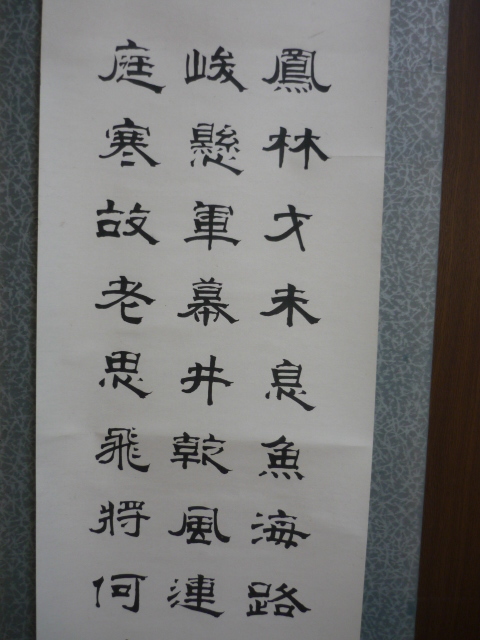 鳳林戈未息魚海路
峻懸軍幕井乾風連
庭寒故老思飛將何